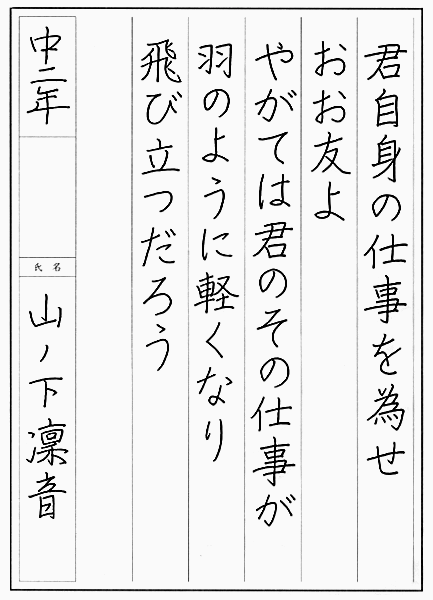 君自身の仕事を為せ
おお友よ
やがては君のその仕事が
羽のように軽くなり
飛び立つだろう
中二年
氏名
山ノ下凜音